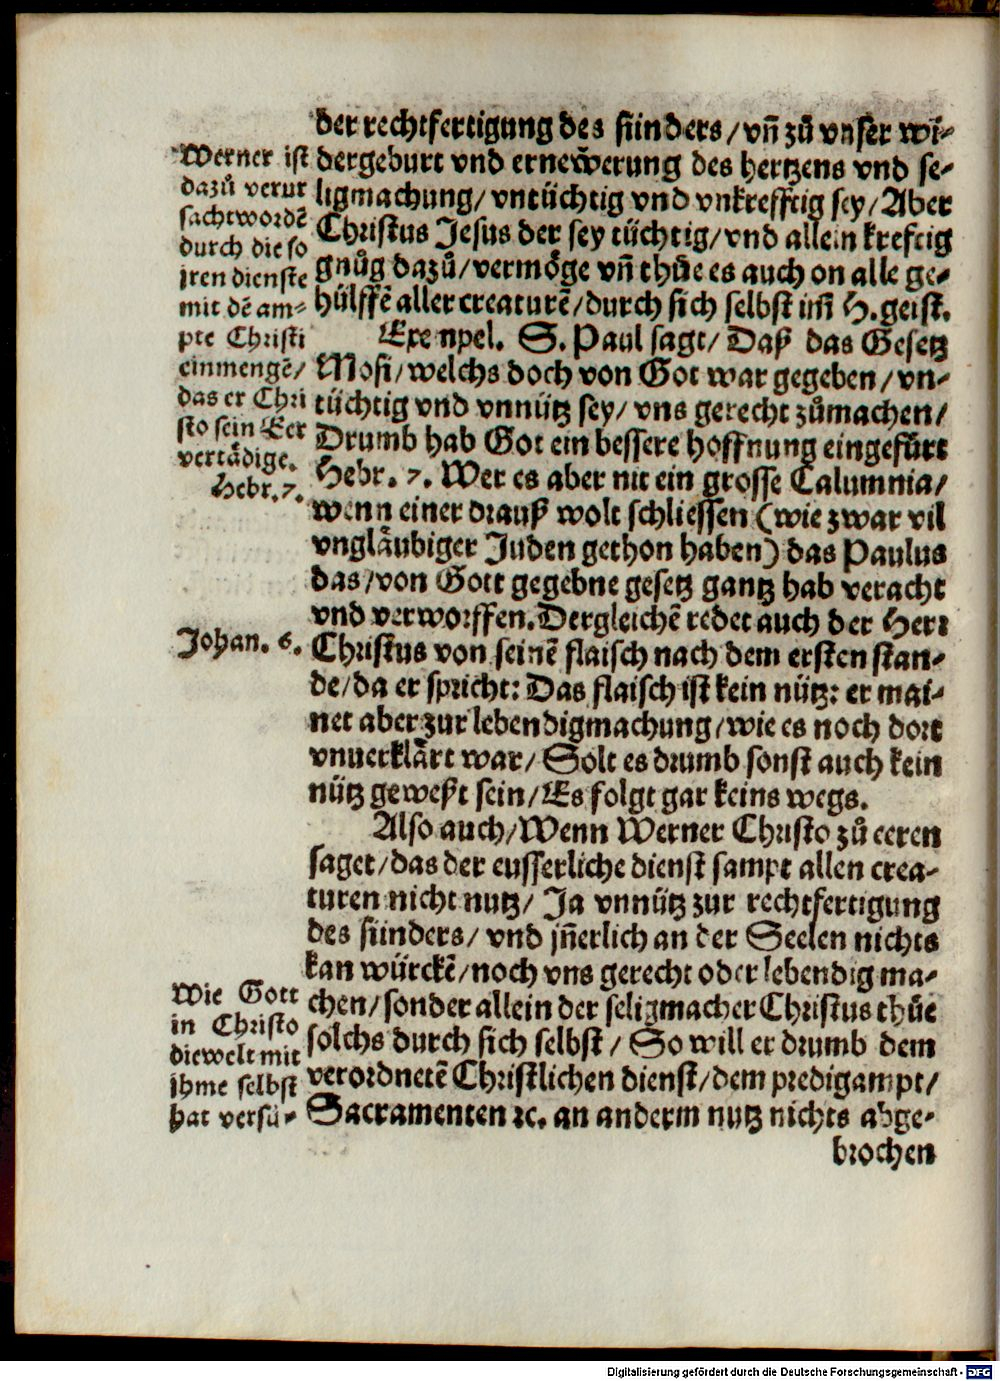 der rechtfertigung des sünders/ vñ zů vnser wi-
dergeburt vnd ernewerung des hertzens vnd se-
ligmachung/ vntüchtig vnd vnkrefftig sey/ Aber
Christus Jesus der sey tüchtig/ vnd allein kreftig
gnůg dazů/ vermöge vñ thüe es auch on alle ge-
hülffẽ aller creaturẽ/ durch sich selbst im̃ H. geist.
Exempel. S. Paul sagt/ Daß das Gesetz
Mosi/ welchs doch von Got war gegeben/ vn-
tüchtig vnd vnnütz sey/ vns gerecht zůmachen/
Drumb hab Got ein bessere hoffnung eingefürt
Hebr. 7. Wer es aber nit ein grosse Calumnia/
wenn einer drauß wolt schliessen (wie zwar vil
vngläubiger Juden gethon haben) das Paulus
das/ von Gott gegebne gesetz gantz hab veracht
vnd verworffen. Dergleichẽ redet auch der Herr
Christus von seinẽ flaisch nach dem ersten stan-
de/ da er spricht: Das flaisch ist kein nütz: er mai-
net aber zur lebendigmachung/ wie es noch dort
vnuerklärt war/ Solt es drumb sonst auch kein
nütz geweßt sein/ Es folgt gar keins wegs.
Also auch/ Wenn Werner Christo zů eeren
saget/ das der eusserliche dienst sampt allen crea-
turen nicht nutz/ Ja vnnütz zur rechtfertigung
des sünders/ vnd jñerlich an der Seelen nichts
kan würckẽ/ noch vns gerecht oder lebendig ma-
chen/ sonder allein der seligmacher Christus thüe
solchs durch sich selbst/ So will er drumb dem
verordnetẽ Christlichen dienst/ dem predigampt/
Sacramenten ꝛc. an anderm nutz nichts abge-
brochen
Werner ist
dazů verur
sacht wordẽ
durch die so
jren dienste
mit dẽ am-
pte Christi
einmengẽ/
das er Chri
sto sein Eer
vertädige.
Hebr. 7.
Johan. 6.
Wie Gott
in Christo
die welt mit
jhme selbst
hat versü-
Digitalisierung gefördert durch die Deutsche Forschungsgemeinschaft - DFG